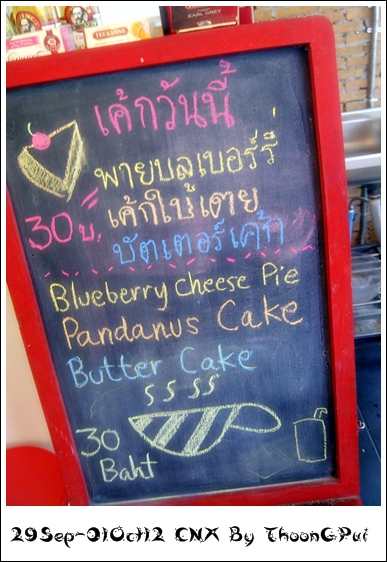 EARL GREY
TEEKANNE
เค้กวันนี้
พายบลูเบอร์รี่
30 บ.
เค้กใบเตย
บัตเตอร์เค้ก
Blueberry Cheese Pie
Pandanus Cake
Butter Cake
30
Baht
29Sep-01Oct12 CNX By ThoonGPui